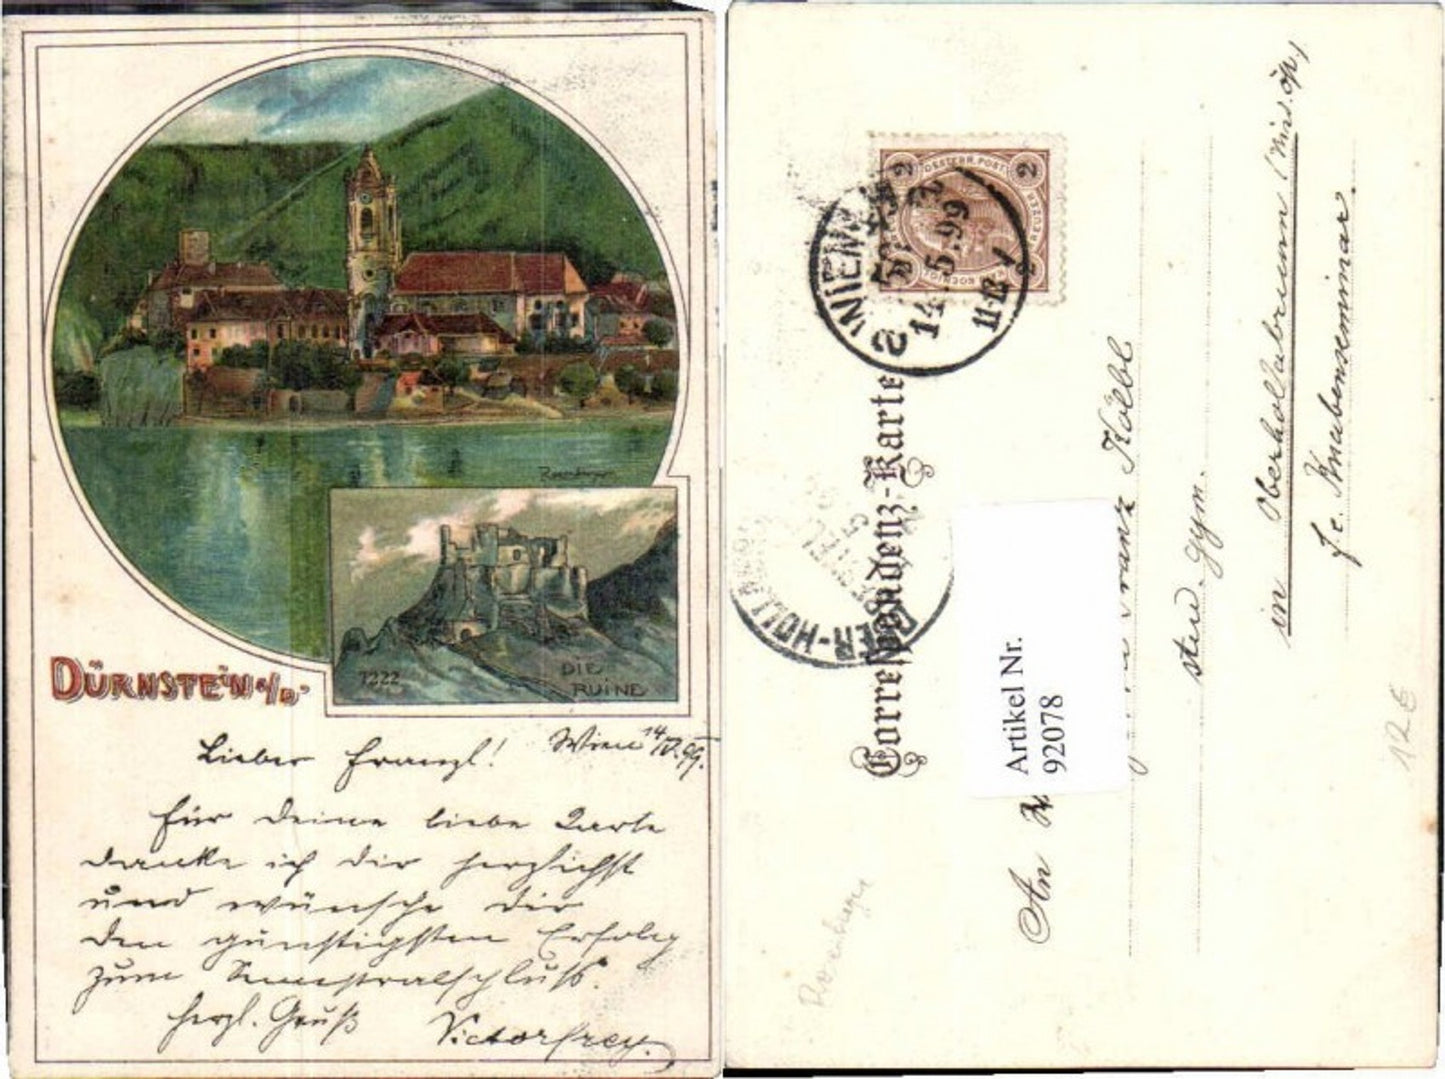 Rosenberger
7222
DIE
RUINE
DÜRNSTEIN a/D.
Wien 14/V.99.
Lieber Franzl!
Für deine liebe Karte
danke ich dir herzlichst
und wünsche dir
den günstigsten Erfolg
zum Semestralschluß.
Herzl. Gruß Victor Frey.
2 OESTERR. POST. 2
WIEN
14.5.99
11-12 V
Correspondenz-Karte
OBER-HOLLABRUNN
An
Franz Kölbl
stud. gym.
in Oberhollabrunn (Nied.öst.)
f. e. Knabenseminar.
Artikel Nr.
92078
12 €